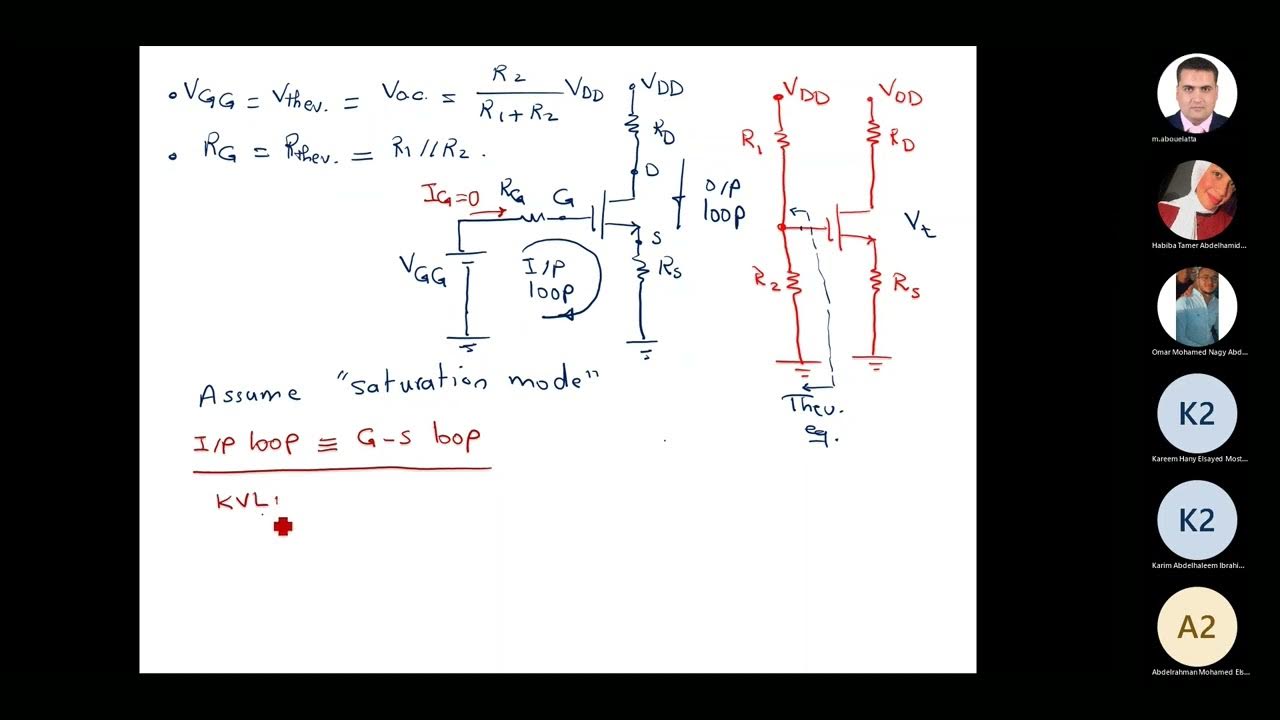 • VGG = Vthev. = Vo.c. = R2 / R1+R2 VDD
• RG = Rthev. = R1 // R2 .
VDD
RD
D
O/P
loop
IG=0
RG
G
S
RS
VGG
I/P
loop
VDD
VDD
R1
RD
Vt
R2
RS
Thev.
eq.
Assume "saturation mode"
I/P loop ≡ G-S loop
KVL:
m.abouelatta
Habiba Tamer Abdelhamid...
Omar Mohamed Nagy Abd...
K2
Kareem Hany Elsayed Most...
K2
Karim Abdelhaleem Ibrahi...
A2
Abdelrahman Mohamed Els...